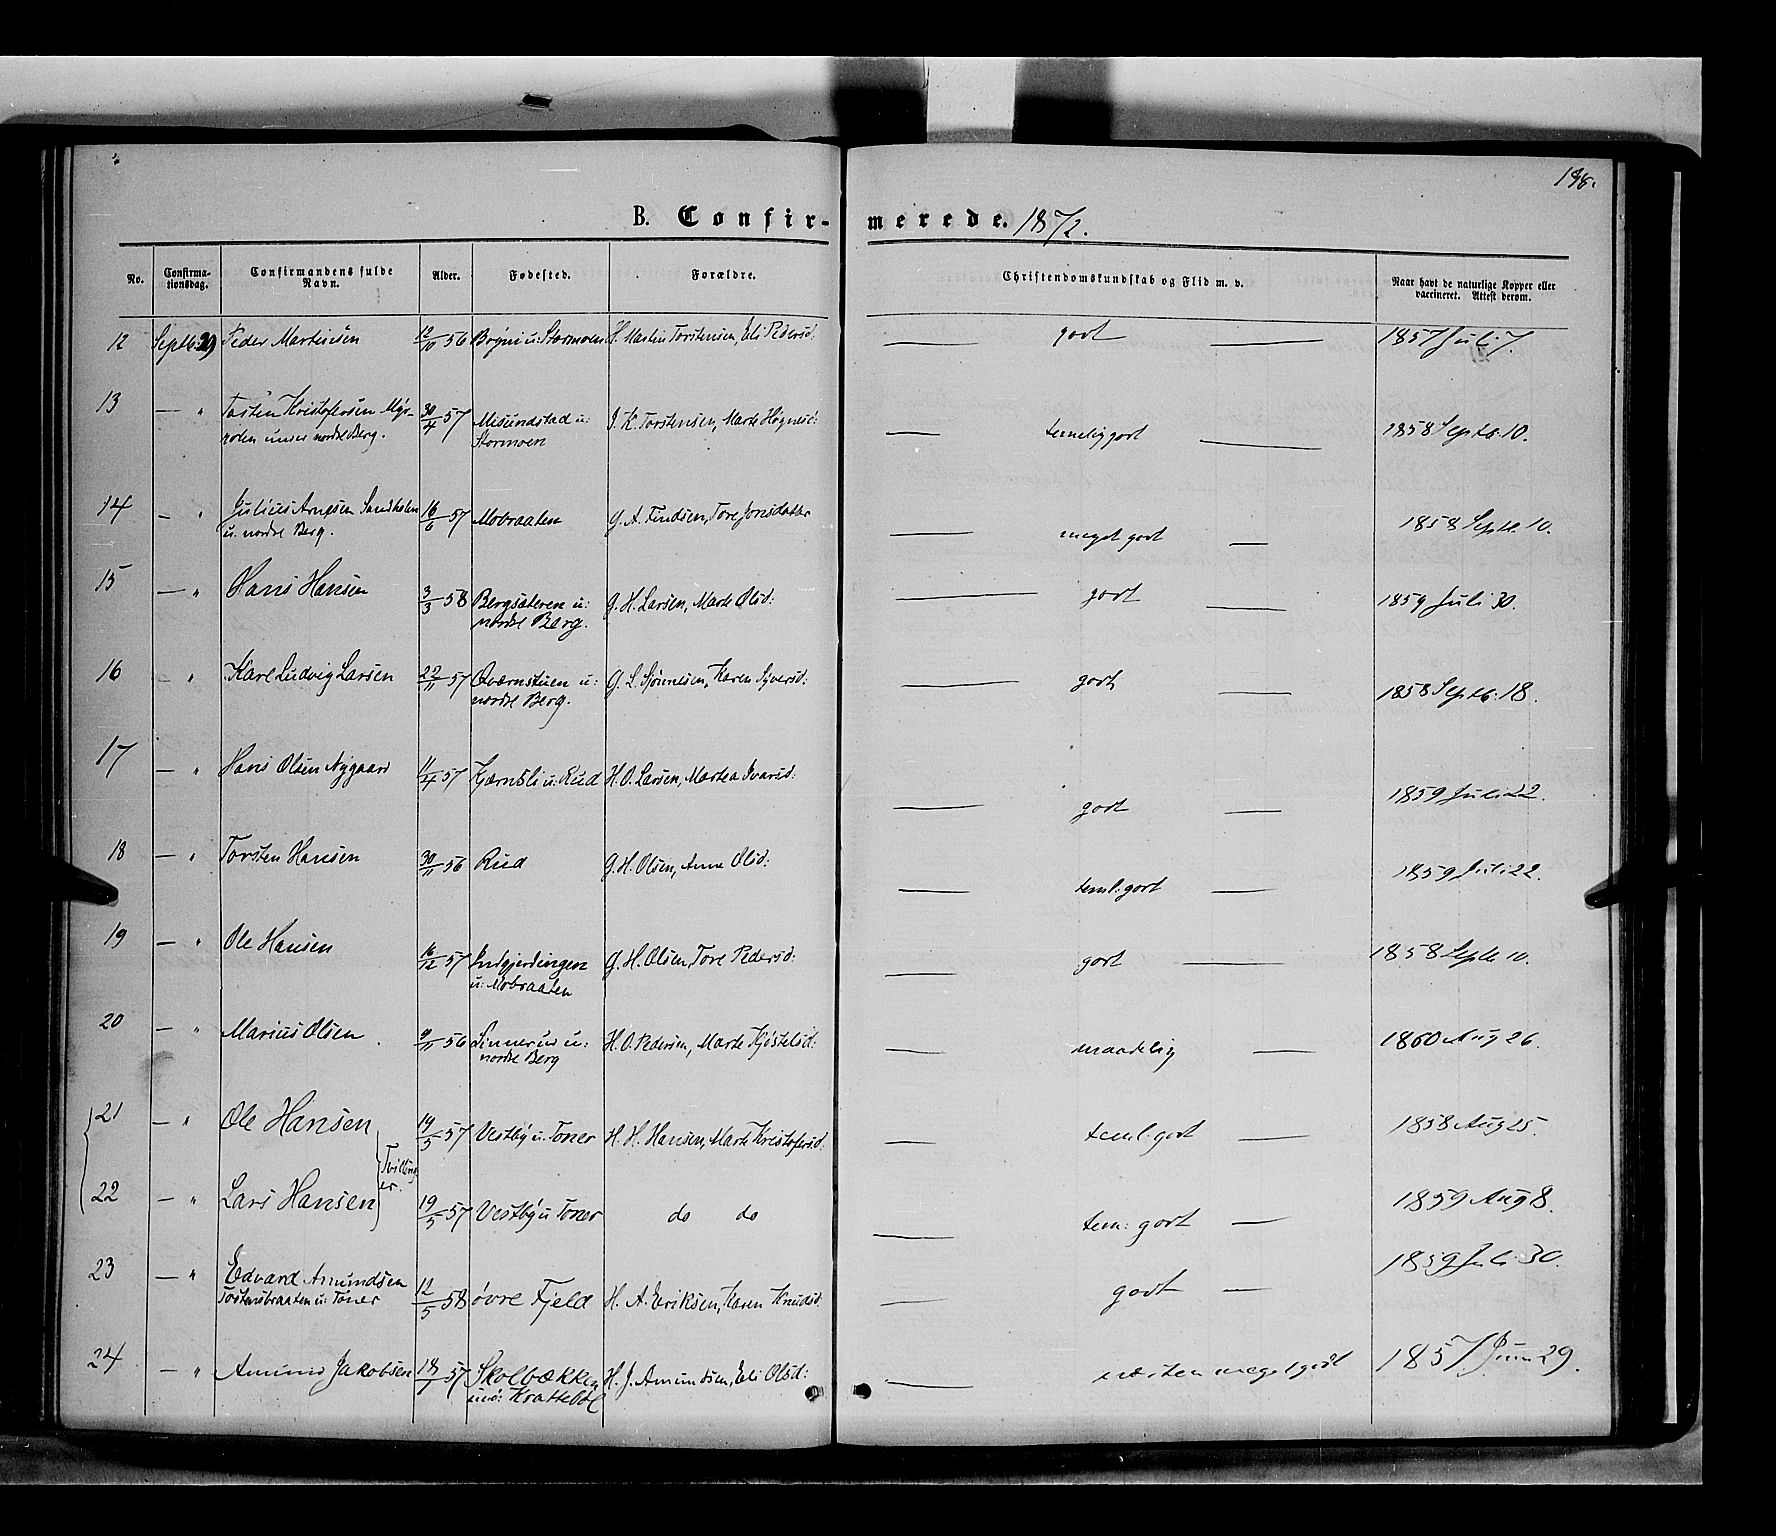 198.
B. Confirmerede. 1872.
No. Confirmationsdag. Confirmandens fulde Navn. Alder. Fødested. Forældre. Christendomskundskab og Flid m. v. Naar havt de naturlige Kopper eller vaccineret. Attest derom.
12 Septb 29 Peder Martinsen 12/10 56 Bøgni u: Stormoen H. Martin Torstensen, Eli Pedersd: — godt — 1857 Juli 7.
13 — " Torsten Kristofersen 30/4 57 Misundstad u: J. K. Torstensen, Marte Høgnesd: — temelig godt — 1858 Septb. 10.
under nordre Berg. Stormoen
14 — " Julius Arnesen Sandholen 16/6 57 Mobraaten G. A. Findsen, Tore Jonsdatter — meget godt — 1858 Septb. 10.
u. nordre Berg.
15 — " Hans Hansen 3/3 58 Bergsæteren u: G. H. Larsen, Marte Olsd: — godt — 1859 Juli 30.
nordre Berg.
16 " Karl Ludvig Larsen 22/11 57 Qværnstuen u: G. L. Karen Syversd: — godt — 1858 Septb: 18.
nordre Berg.
17 — " Hans Olsen Nygaard 11/4 57 Kjærnsli u: Rud H. O. Larsen, Martea Ivarsd: — godt — 1859 Juli 22.
18 — " Torsten Hansen 30/11 56 Rud G. H. Olsen, Anne Olsd: — teml: godt — 1859 Juli 22.
19 — " Ole Hansen 16/12 57 Indgjerdingen G. H. Olsen, Tore Pedersd: — godt — 1858 Septb 10.
u: Mobraaten
20 — " Marius Olsen. 9/11 56 Linnerud u: H. O. Pedersen, Marte Kjøstelsd: — maadelig — 1860 Aug 26.
nordre Berg
21 — " Ole Hansen 19/5 57 Vestby u. Toner H. H. Hansen, Marte Kristofersd: — teml. godt — 1858 Aug 25.
Tvillinger.
22 — " Lars Hansen 19/5 57 Vestby u Toner do do — tem: godt — 1859 Aug 8.
23 — " Edvard Amundsen 12/5 58 øvre Fjeld H. A. Eriksen, Karen Knudsd. — godt — 1859 Juli 30.
Torstensbraaten u: Toner
24 — " Amund Jakobsen 18/1 57 Skolbækken H. J. Amundsen, Eli Olsd: — næsten meget godt 1857 Juni 29.
und: Krattebøl